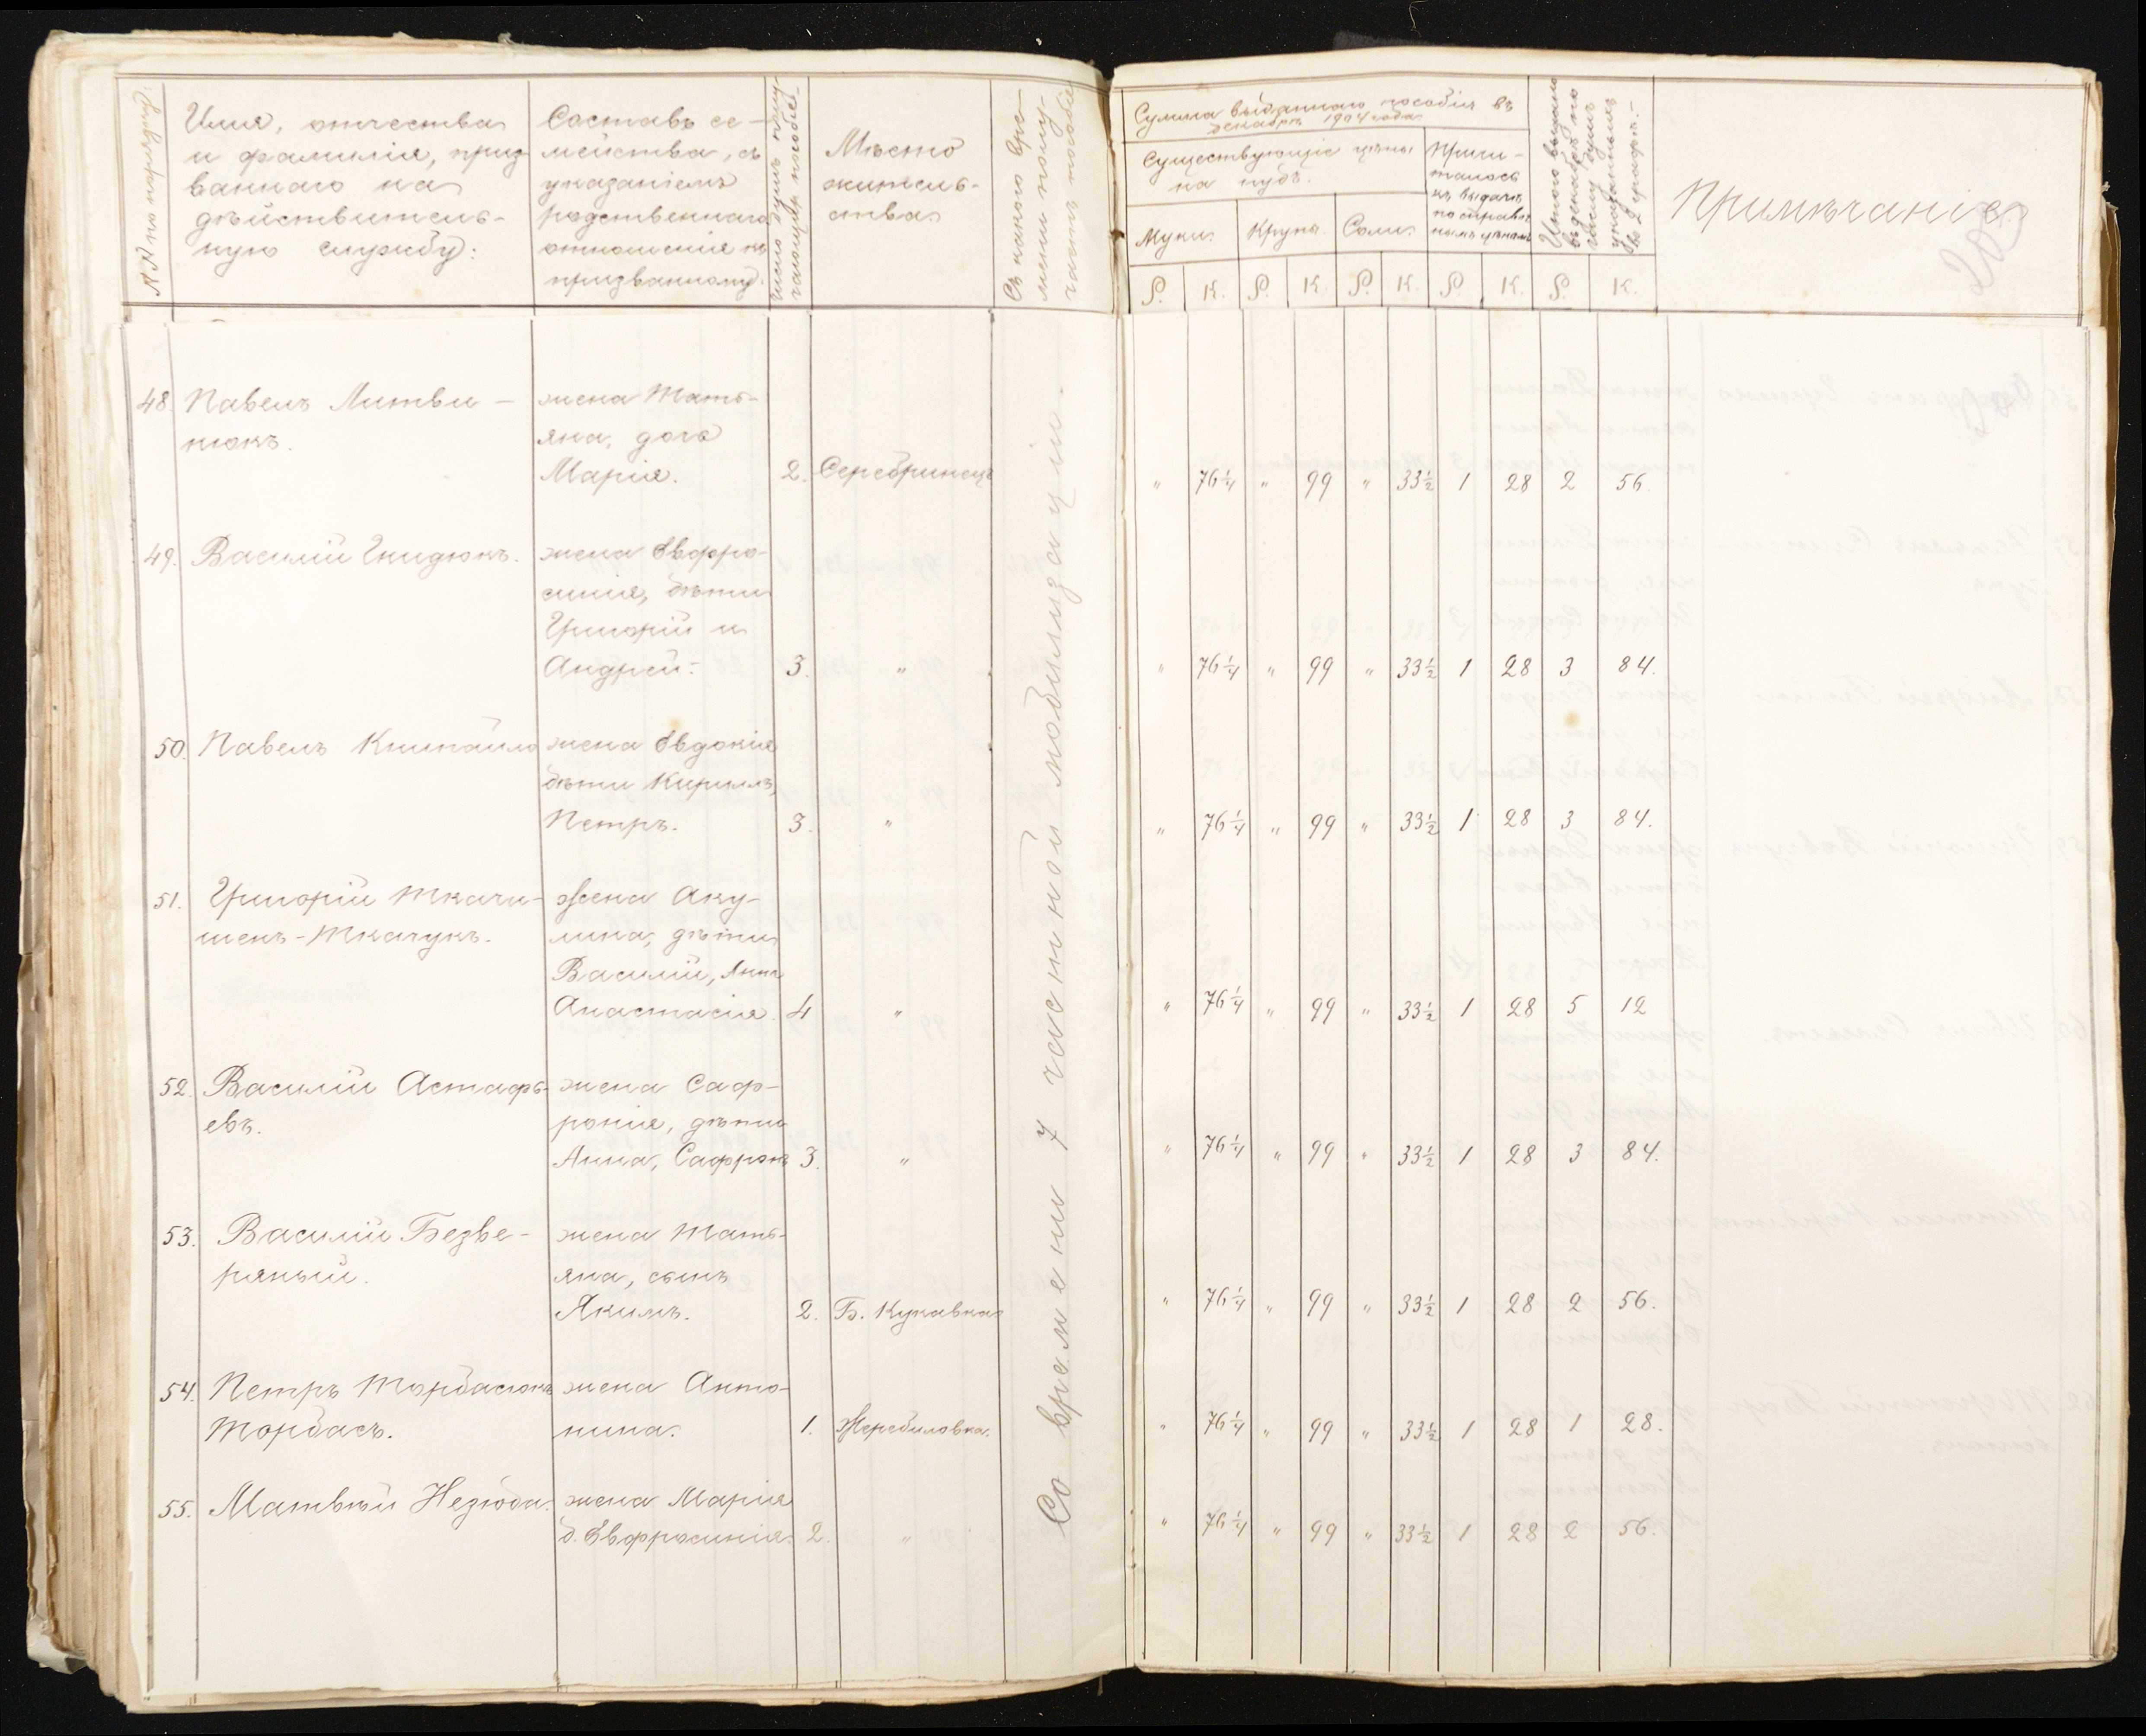 №№ по порядку.
Имя, отчества
и фамилія, приз-
ваннаго на
дѣйствитель-
ную службу:
Составъ се-
мейства, съ
указаніемъ
родственнаго
отношенія къ
призванному.
Число душъ полу-
чающихъ пособіе.
Мѣсто
житель-
ства
Съ какого вре-
мени полу-
чаютъ пособіе
Сумма выданнаго пособія въ
декабрѣ 1904 года
Существующіе цѣны
на пудъ.
Муки.
Крупъ.
Соли.
Причи-
талось
къ выдачѣ
по справоч
нымъ цѣнамъ
Итого выдано
въ декабрѣ по
числу душъ
указаннымъ
въ 2 графѣ.-
Примѣчаніе
203
Р. К. Р. К. Р. К. Р. К. Р. К.
48. Павелъ Литви- жена Тать-
нюкъ. яна, дочь
Марія. 2. Серебринецъ " 76¼ " 99 " 33½ 1 28 2 56
49. Василій Гнидюкъ. жена Евфро-
синія, дѣти
Григорій и
Андрей. 3. " " 76¼ " 99 " 33½ 1 28 3 84.
50. Павелъ жена Евдокія
дѣти Кириллъ,
Петръ. 3. " " 76¼ " 99 " 33½ 1 28 3 84.
51. Григорій Ткачи- Жена Аку-
шенъ-Ткачукъ. лина, дѣти
Василій, Анна
Анастасія. 4 " " 76¼ " 99 " 33½ 1 28 5 12
52. Василій Астафь- жена Саф-
евъ. ронія, дѣти
Анна, Сафронъ 3. " " 76¼ " 99 " 33½ 1 28 3 84.
53. Василій Безве- жена Тать-
ряный. яна, сынъ
Якимъ. 2. Б. Кукавка " 76¼ " 99 " 33½ 1 28 2 56.
54. Петръ Торбасюкъ жена Анто-
Торбасъ. нина. 1. Жеребиловка. " 76¼ " 99 " 33½ 1 28 1 28.
55. Матвѣй Незюба. жена Марія
д. Евфросинія. 2. " " 76¼ " 99 " 33½ 1 28 2 56.
Со времени 7 частной мобилизаціи.